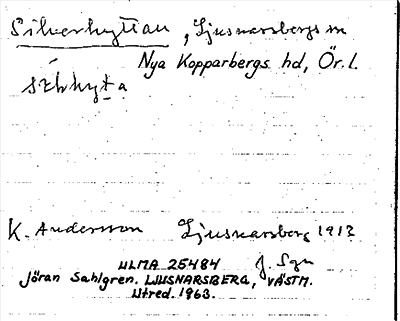 Silverhyttan, Ljusnarsbergs sn
Nya Kopparbergs hd, Ör. l.
K. Andersson Ljusnarsberg 1913
ULMA 25484 J. Sgn
Jöran Sahlgren. LJUSNARSBERG, VÄSTM.
Utred. 1963.